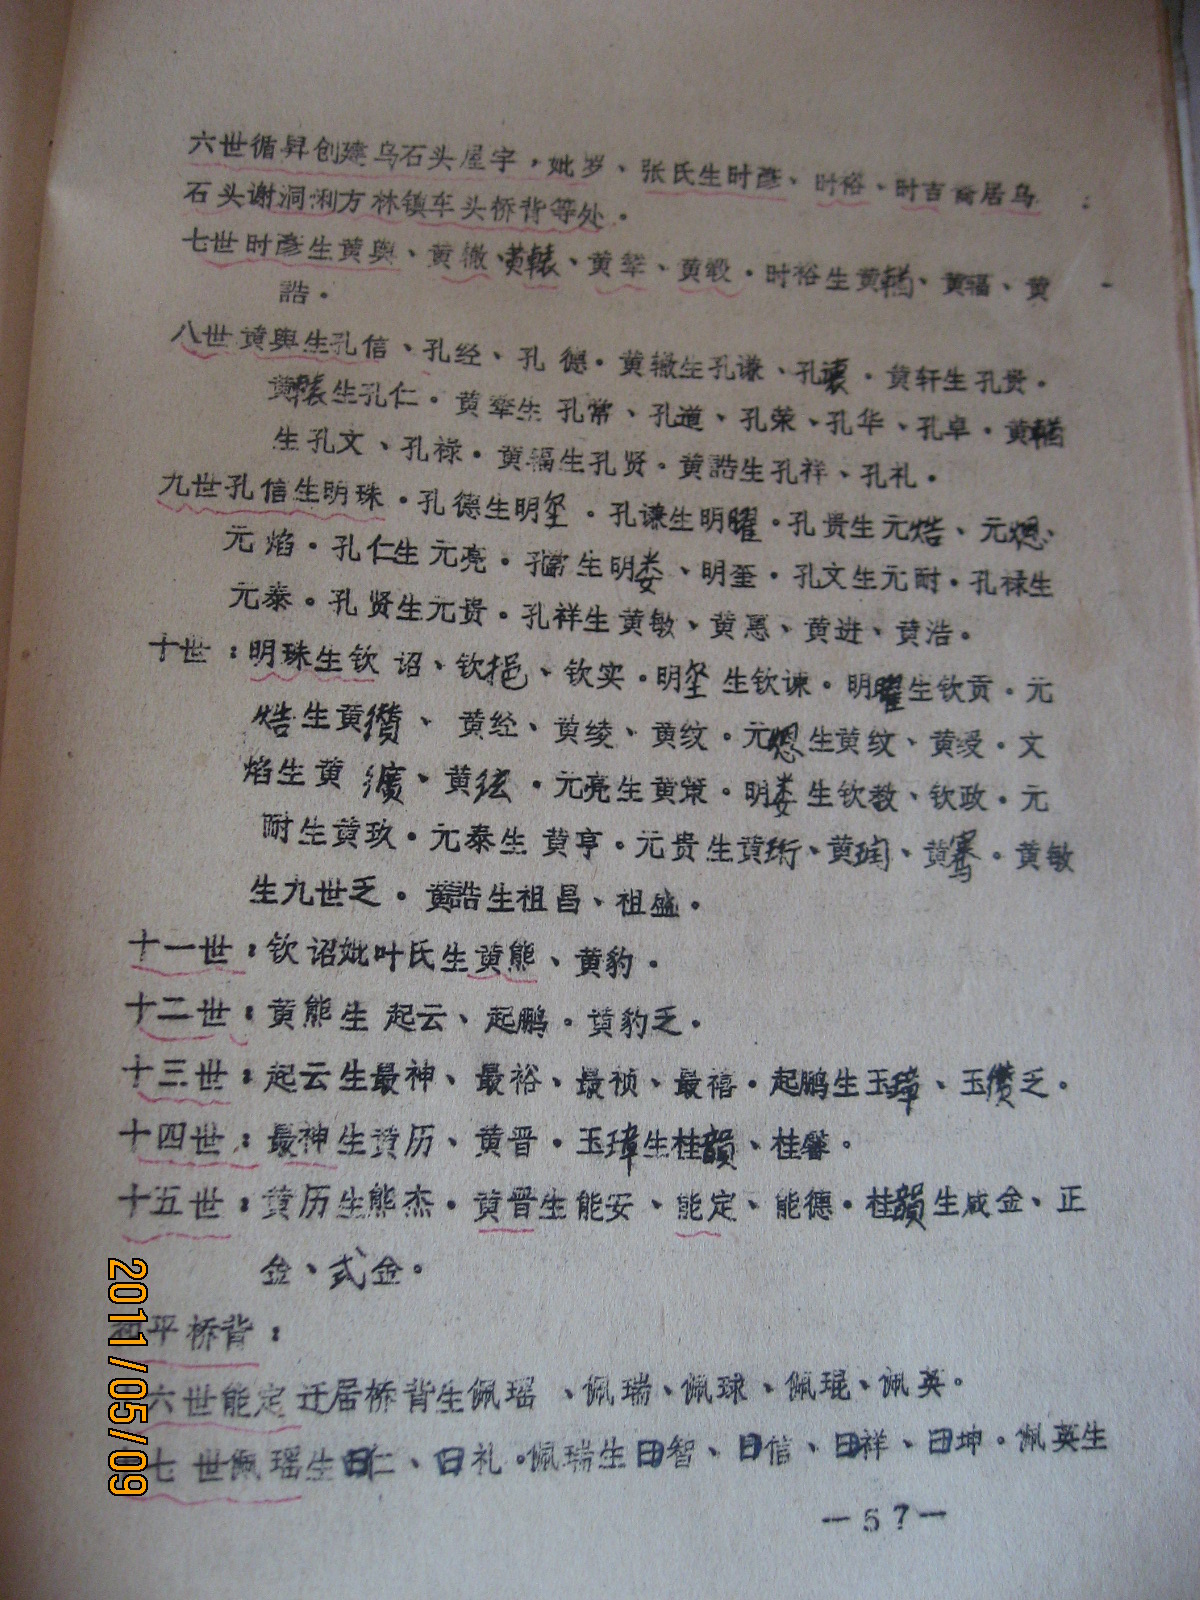 六世循昇创建乌石头屋宇,妣岁、张氏生时彦、时裕、时吉裔居乌
石头谢洞浰方林镇车头桥背等处。
七世时彦生黄舆、黄辙、黄轅、黄辇、黄毂。时裕生黄、黄辐、黄
誥。
八世黄舆生孔信、孔经、孔德。黄辙生孔谦、孔讓。黄轩生孔贵。
黄轅生孔仁。黄辇生孔常、孔道、孔荣、孔华、孔卓。黄
生孔文、孔禄。黄辐生孔贤。黄誥生孔祥、孔礼。
九世孔信生明珠。孔德生明。孔谦生明曜。孔贵生元焅、元、
元焰。孔仁生元亮。孔常生明娄、明奎。孔文生元耐。孔禄生
元泰。孔贤生元贵。孔祥生黄敏、黄惠、黄进、黄浩。
十世:明珠生钦诏、钦挹、钦实。明生钦谏。明曜生钦贡。元
焅生黄缵、黄经、黄绫、黄纹。元生黄纹、黄绶。文
焰生黄纩、黄纮。元亮生黄策。明娄生钦教、钦政。元
耐生黄玖。元泰生黄亨。元贵生黄珩、黄润、黄骞。黄敏
生九世乏。黄誥生祖昌、祖盛。
十一世:钦诏妣叶氏生黄熊、黄豹。
十二世:黄熊生起云、起鹏。黄豹乏。
十三世:起云生最神、最裕、最祯、最禧。起鹏生玉璋、玉瓒乏。
十四世:最神生黄历、黄晋。玉璋生桂韻、桂馨。
十五世:黄历生熊杰。黄晋生能安、能定、能德。桂韻生咸金、正
金、式金。
和平桥背:
六世能定迁居桥背生佩瑶、佩瑞、佩球、佩琨、佩英。
七世佩瑶生曰仁、曰礼。佩瑞生曰智、曰信、曰祥、曰坤。佩英生
—57—
2011/05/09